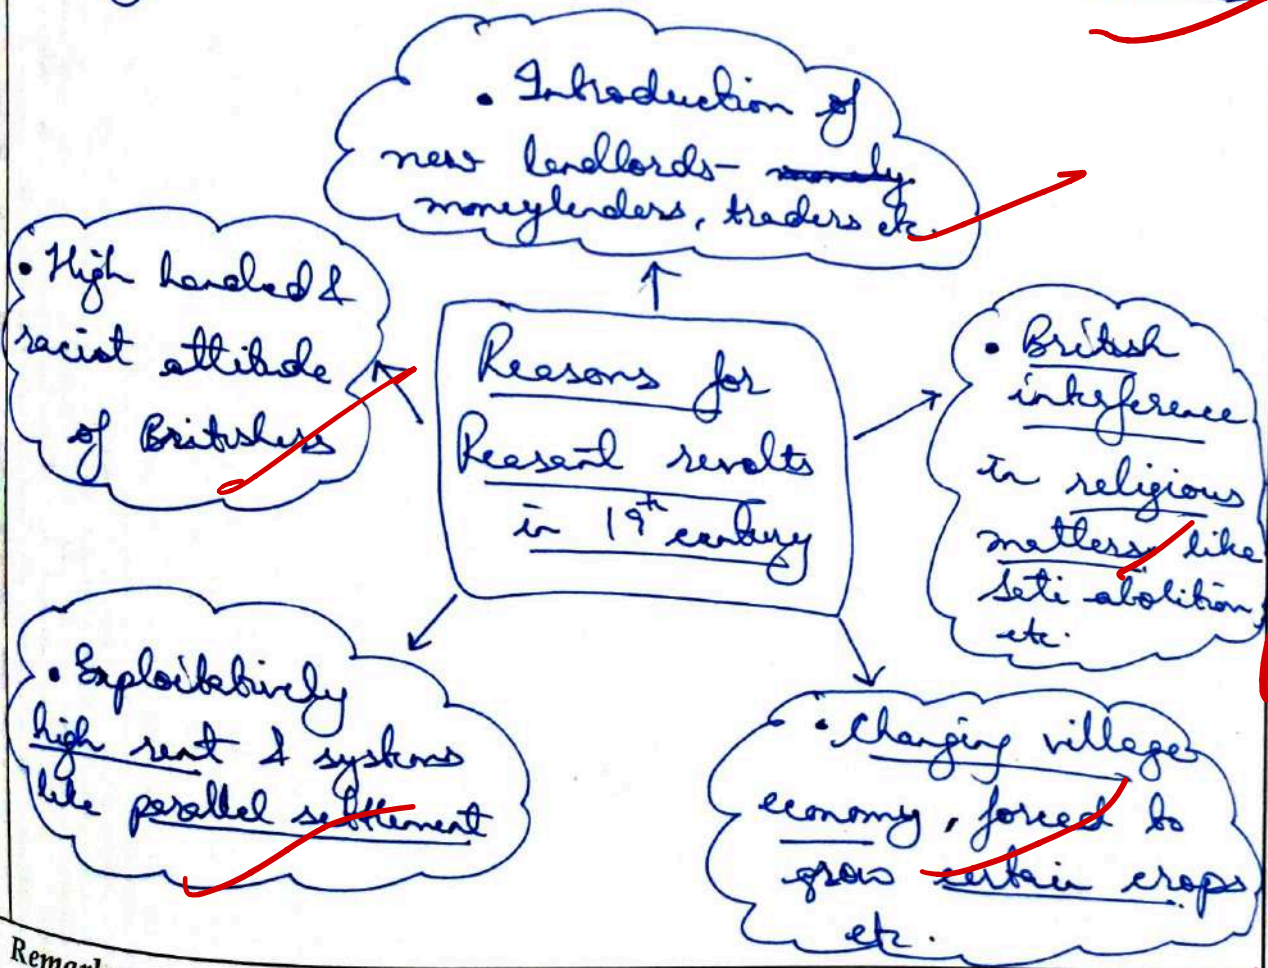 • Introduction of
new landlords-
moneylenders, traders etc.
• High handed &
racist attitude
of Britishers
Reasons for
Peasant revolts
in 19th century
• British
inteference
in religious
matters, like
Sati abolition,
etc.
• Exploitatively
high rent & systems
like parallel settlement
• Changing village
economy, forced to
grow certain crops
etc.